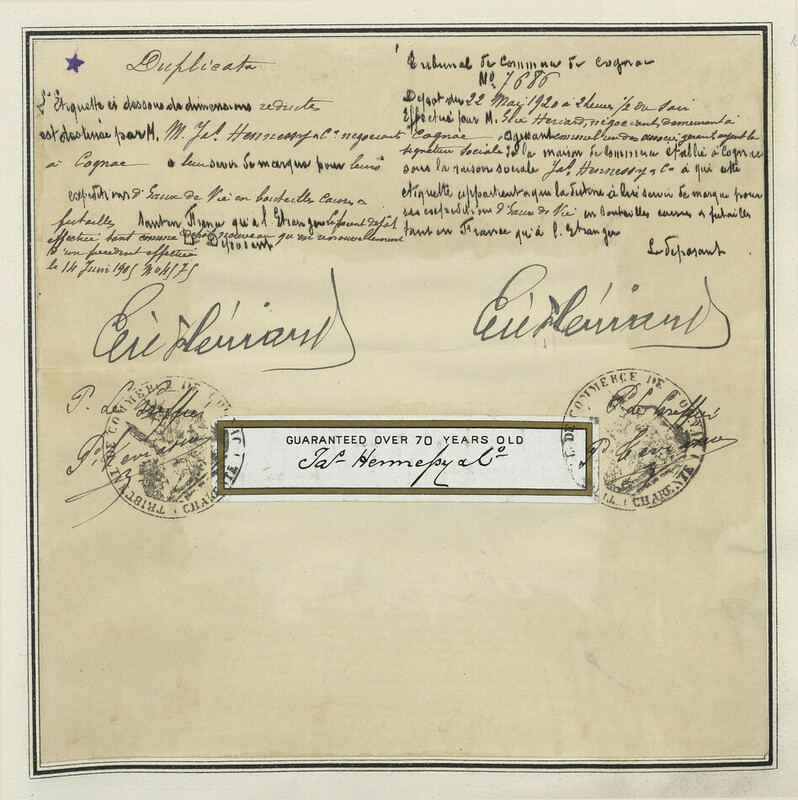 Duplicata
L'Etiquette ci dessous de dimensions reduites
est destinée par M. M. Jas. Hennessy & Co negociant
à Cognac à leur servir de marque pour leurs
expeditions d'Eaux de Vie en bouteilles caisses &
futailles tant en France qu'à l'Etranger le présent depôt
effectué tant comme depôt nouveau qu'en renouvellement
d'un precedent effectué
le 14 Juin 1905 No 4575
Le Déposant
Tribunal de Commerce de Cognac
No. 7686
Depot du 22 Mai 1920 à 2 heures 1/2 du Soir
Effectué par M. Hériard, négociant, demeurant à
Cognac, agissant comme l'un des associés gerants ayant la
signature sociale de la maison de Commerce établie à Cognac
sous la raison sociale Jas. Hennessy & Co à qui cette
etiquette appartient & qui la destine à lui servir de marque pour
ses expeditions d'Eaux de Vie en bouteilles caisses & futailles
tant en France qu'à l'Etranger
Le deposant
Hériard
Hériard
P. Le Greffier
P. Le Greffier
TRIBUNAL DE COMMERCE DE CHARENTE
GUARANTEED OVER 70 YEARS OLD
Jas Hennessy & Co
L DE COMMERCE DE COGNAC CHARENTE